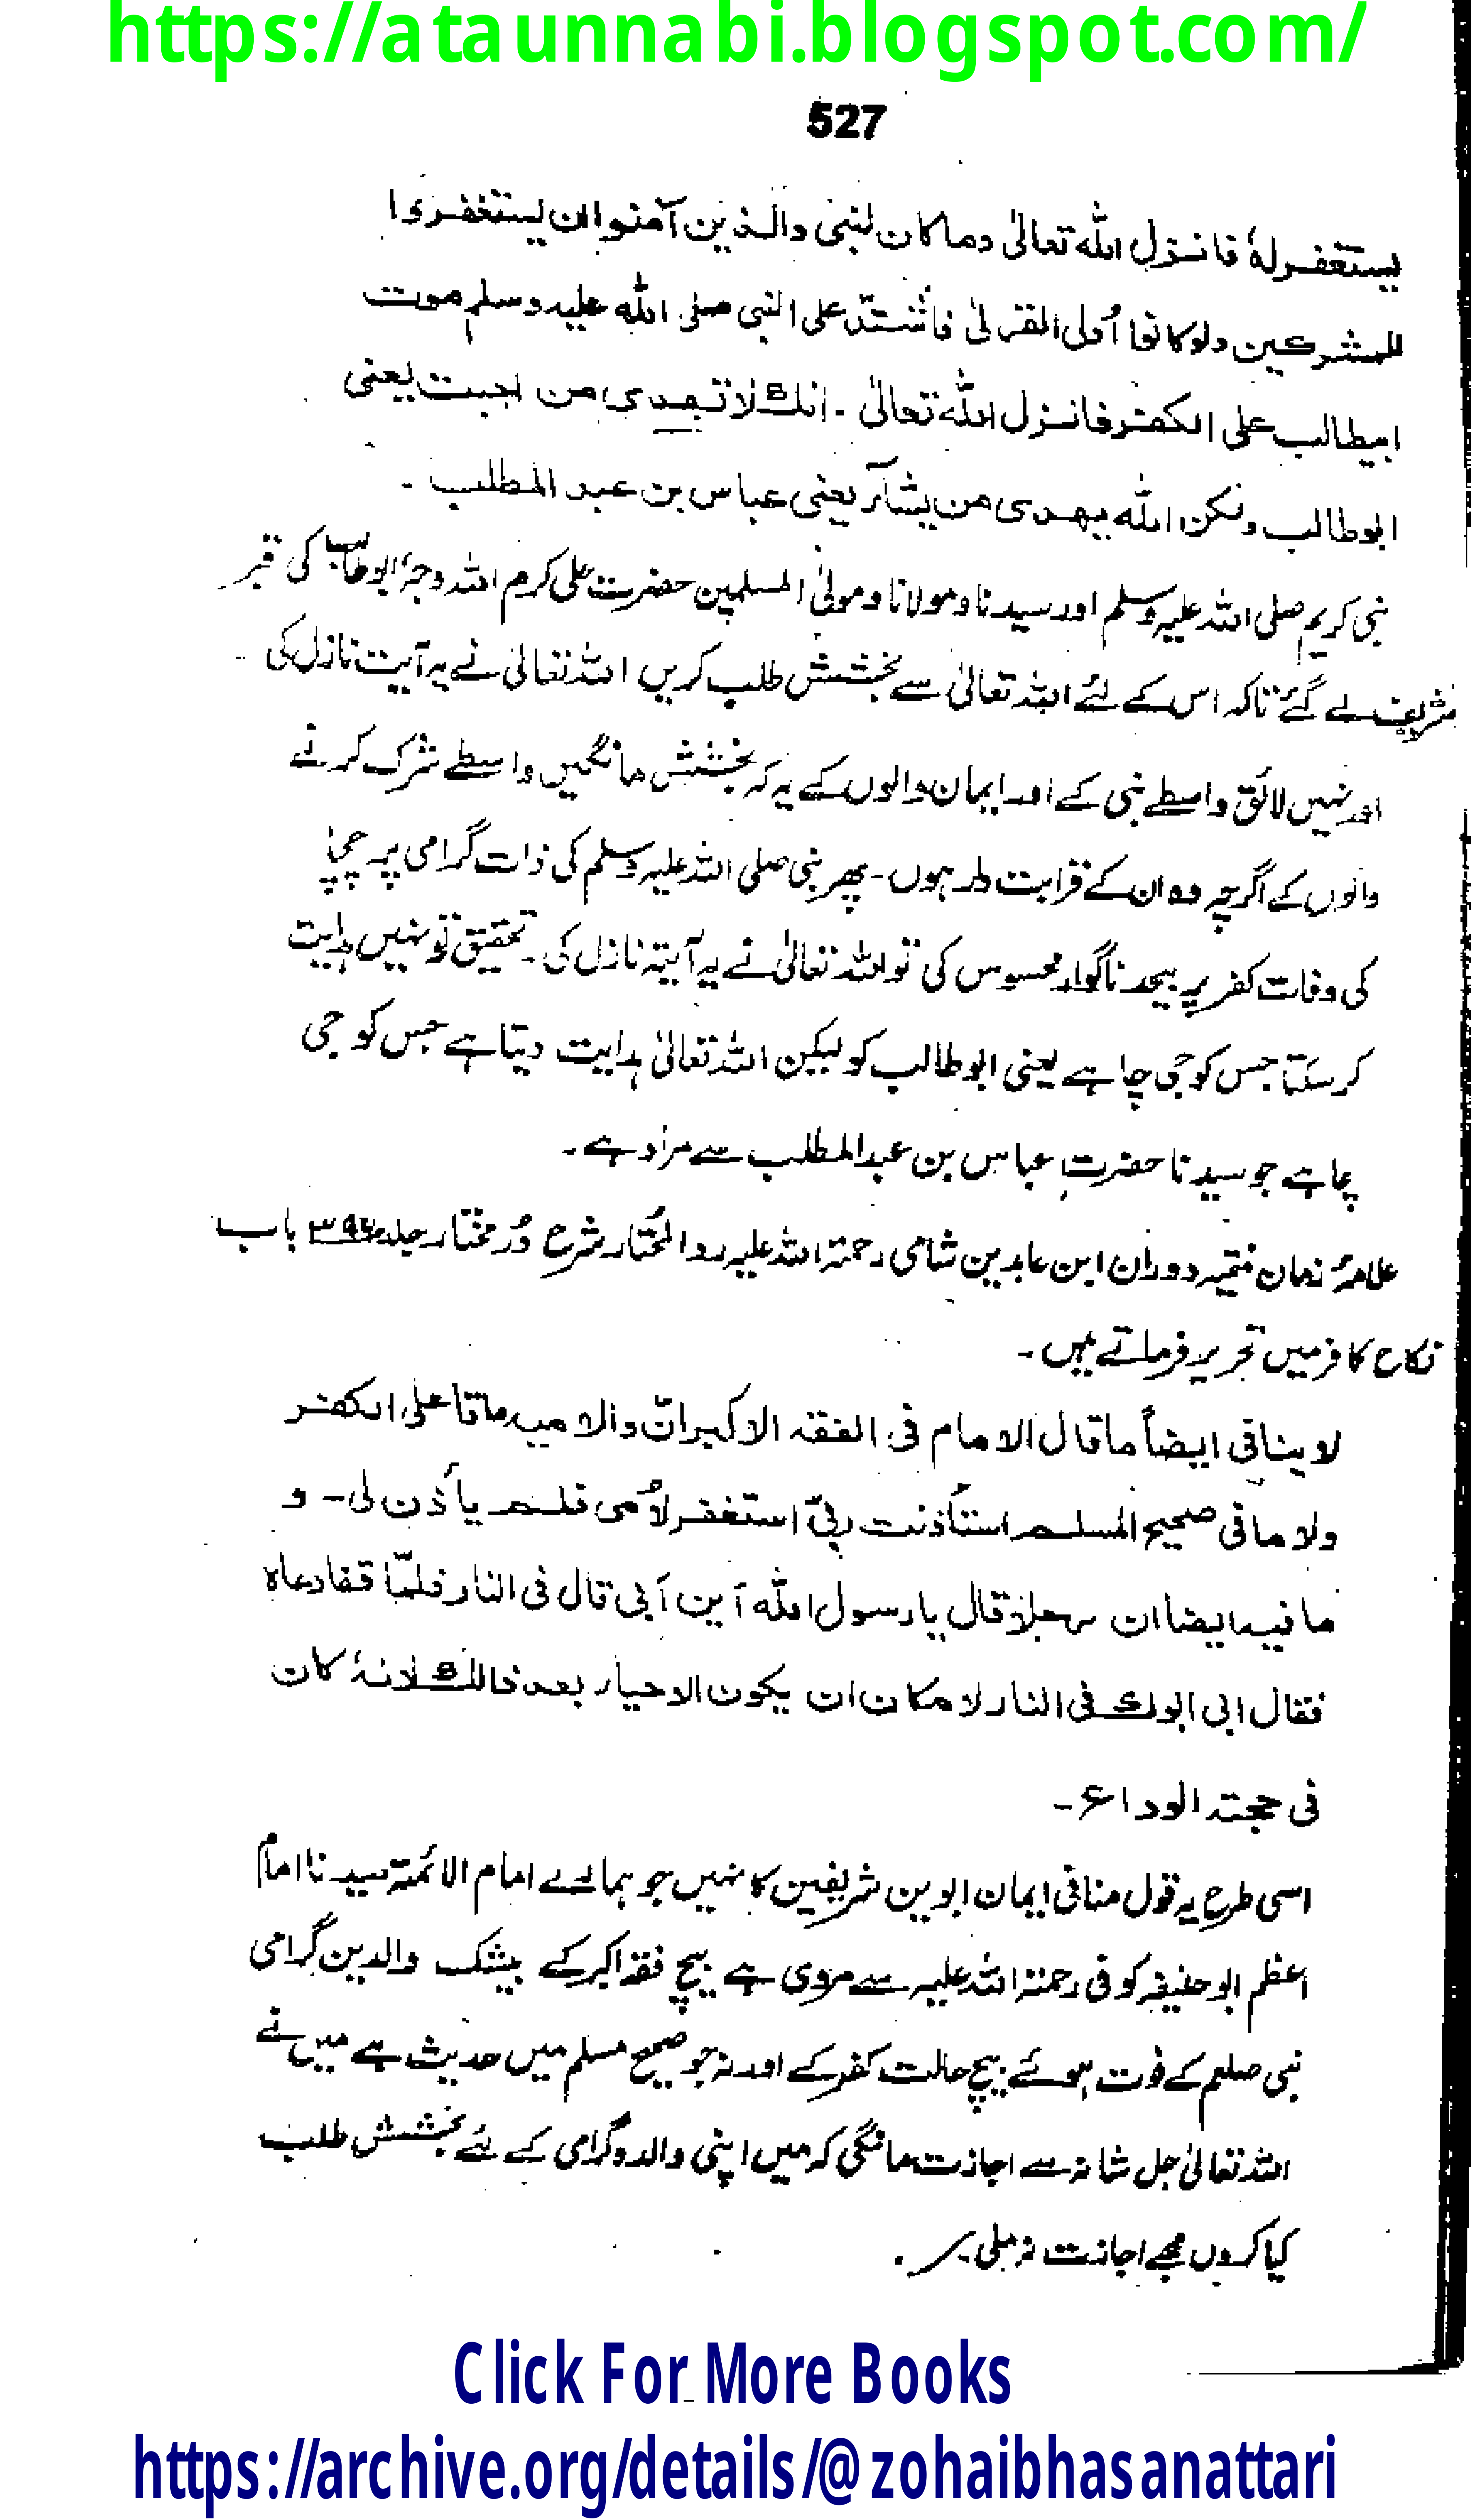 https://ataunnabi.blogspot.com/
527
یستغفر لہٗ فانزل اللہ تعالیٰ وماکان لنبی والذین آمنوا ان یستغفروا
للمشرکین ولوکانوا اُولی القربیٰ فاشتدّ علی النبی صلی اللہ علیہ وسلم موت
ابیطالب علی الکفر فانزل اللہ تعالیٰ ۔ انک لاتھدی من احببت یعنی
ابوطالب ولکن اللہ یھدی من یشآء یعنی عباس بن عبد المطلب ۔
نبی کریم صلی اللہ علیہ وسلم اور سیدنا ومولانا ومولیٰ المسلمین حضرت علی کرم اللہ وجہٗ ابوطالب کی قبر پر
تشریف لے گئے تاکہ اس کے لئے اللہ تعالیٰ سے بخشش طلب کریں اللہ تعالیٰ نے یہ آیت نازل کی ۔
اور نہیں لائق واسطے نبی کے اور ایمان والوں کے یہ کہ بخشش مانگیں واسطے شرک کرنے
والوں کے اگرچہ وہ ان کے قرابت دار ہوں ۔ پھر نبی صلی اللہ علیہ وسلم کی ذات گرامی پر چچا
کی وفات کفر پر بیحد ناگوار محسوس کی تو اللہ تعالیٰ نے یہ آیتہ نازل کی ۔ تحقیق تو نہیں ہدایت
کر سکتا جس کو جی چاہے یعنی ابوطالب کو لیکن اللہ تعالیٰ ہدایت دیتا ہے جس کو جی
چاہے جو سیدنا حضرت عباس بن عبدالمطلب سے مراد ہے ۔
علامۂ زمان فقیہ دوران ابن عابدین شامی رحمۃ اللہ علیہ ردالمُحتار شرح دُر مختار جلد باب
نکاح کافر میں تحریر فرماتے ہیں ۔
لاینافی ایضاً ماقال الامام فی الفقہ الاکبر انّ والدمیہ ماتا علی الکفر
ولا مافی صحیح المسلم استأذنت ربیّ استغفر لاُمی فلم یأذن لی ۔ و
مافیہ ایضا ان رجلاً قال یارسول اللہ آین آبی قال فی النار فلمّا قفا دعاہ
فقال ابی ابوک فی النار لامکان ان یکون الاحیاء بعد ذالک لانہٗ کان
فی حجتہ الوداع ۔
اسی طرح یہ قول منافی ایمان ابوین شریفین کا نہیں جو ہمارے امام الائمۃ سیدنا امام
اعظم ابوحنیفہ کوفی رحمۃ اللہ علیہ سے مروی ہے بیچ فقہ اکبر کے بیشک والدین گرامی
نبی صلعم کے فوت ہوئے بیچ حالت کفر کے اور نہ جو صحیح مسلم میں حدیث ہے میں نے
اللہ تعالیٰ جل شانہ سے اجازت مانگی کہ میں اپنی والدہ گرامی کے لئے بخشش طلب
کیا کروں مجھے اجازت نہ ملی ۔
Click For More Books
https://archive.org/details/@zohaibhasanattari